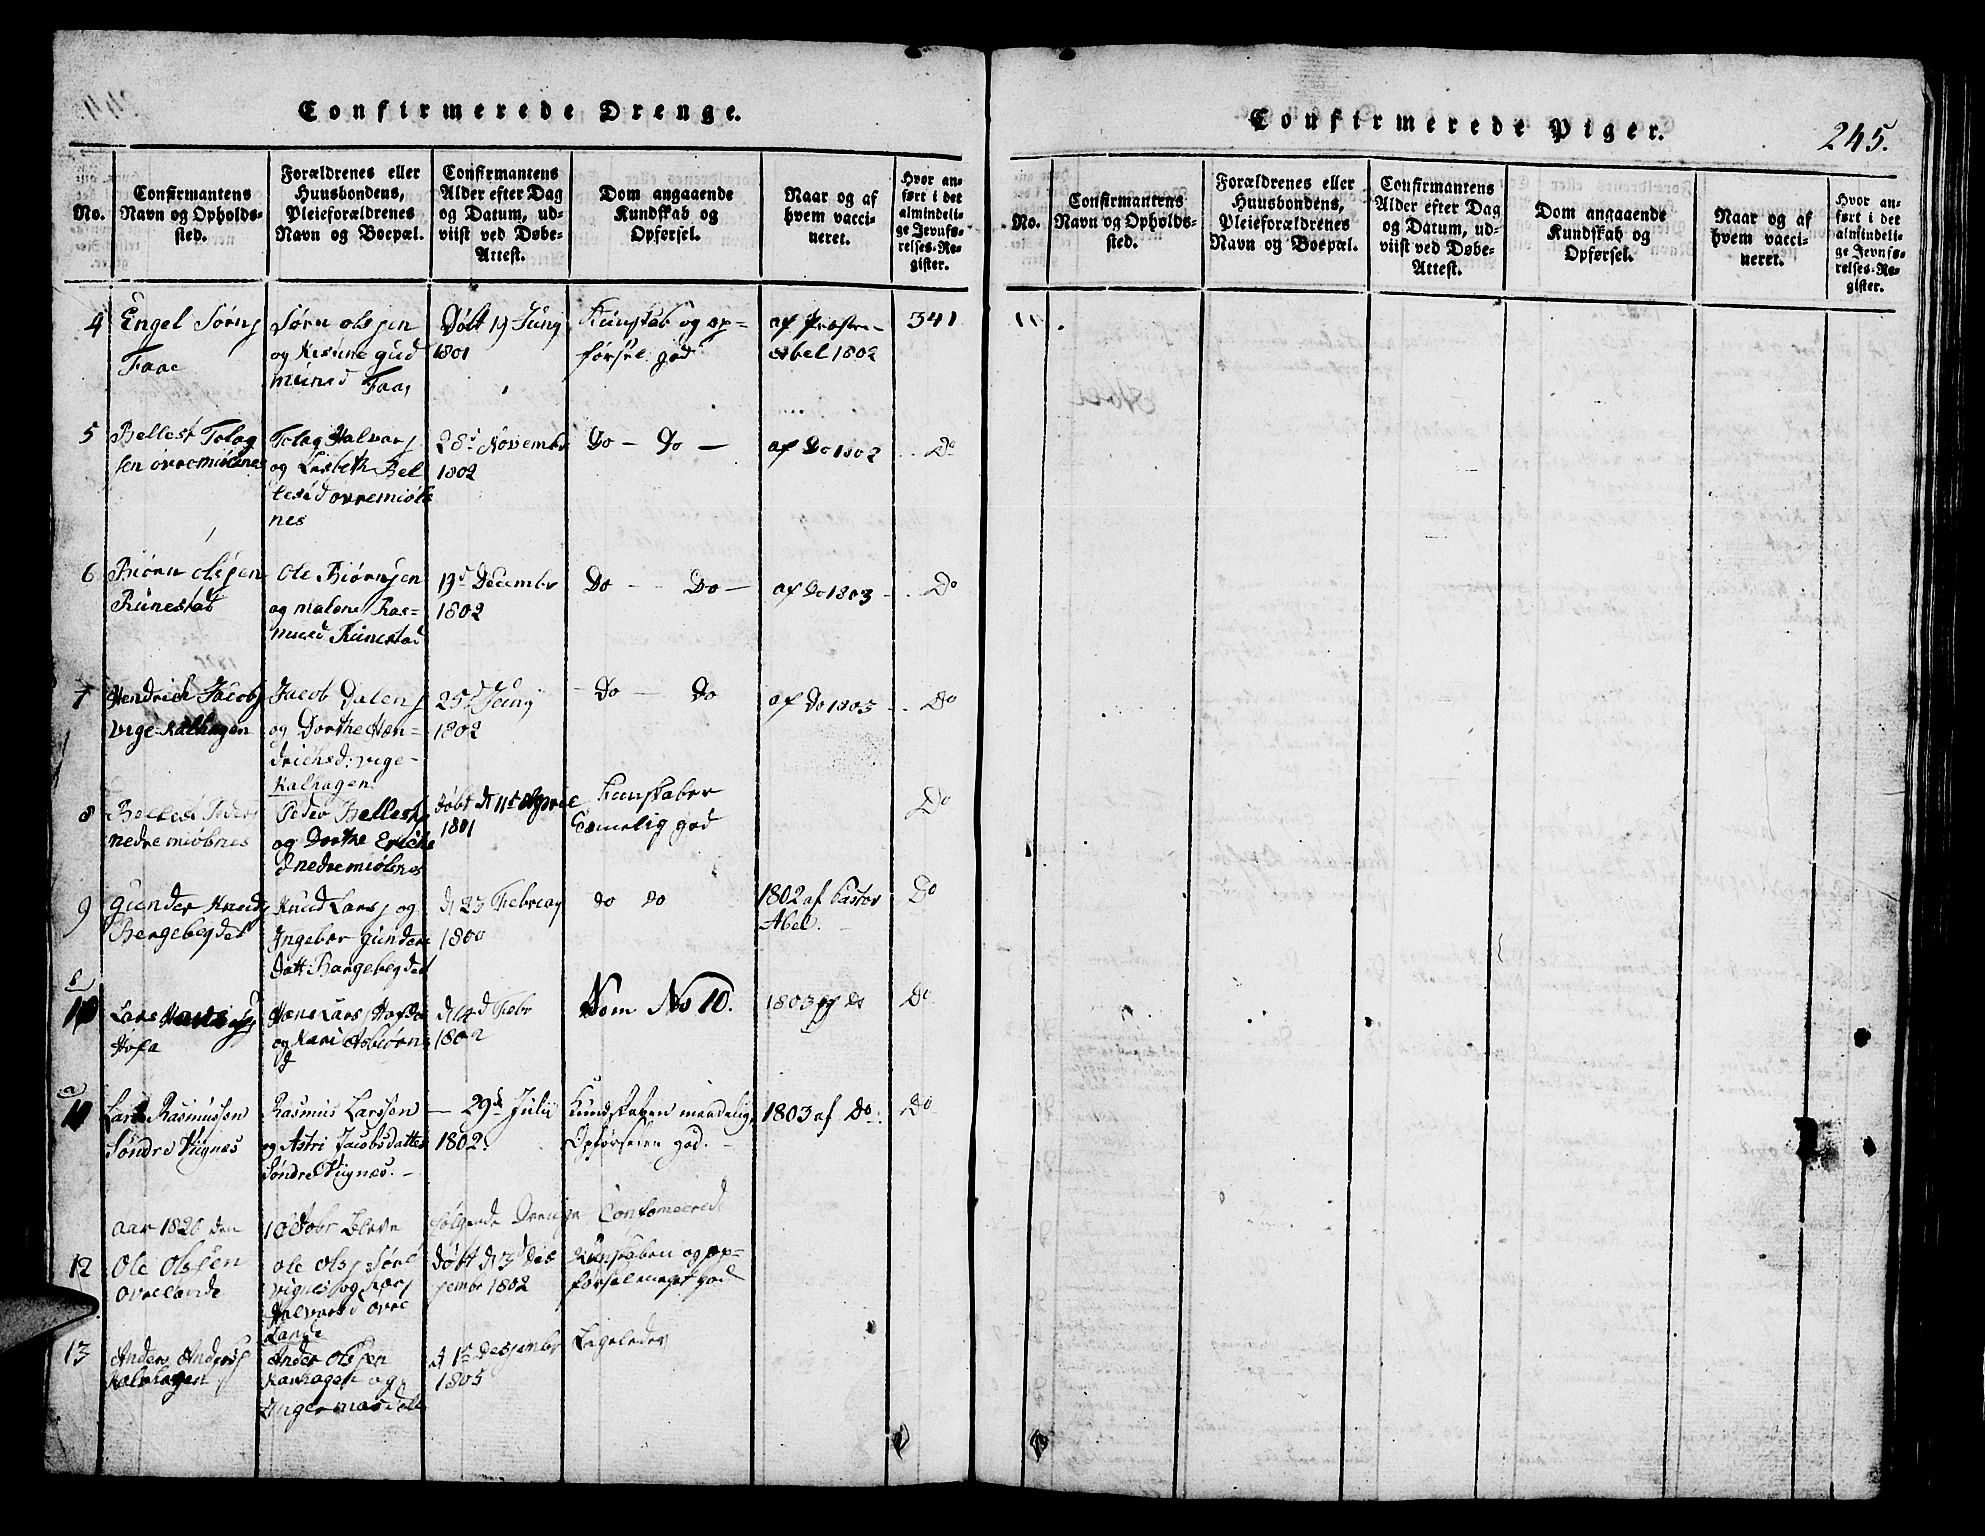 Confirmerede Drenge.
No.
Confirmantens
Navn og Opholds-
sted.
Forældrenes eller
Huusbondens,
Pleieforældrenes
Navn og Boepæl.
Confirmantens
Alder efter Dag
og Datum, ud-
viist ved Døbe-
Attest.
Dom angaaende
Kundskab og
Opførsel.
Naar og af
hvem vacci-
neret.
Hvor an-
ført i det
almindeli-
ge Jevnfø-
relses-Re-
gister.
4
Engel Sørnj
Faae
Sørn olsjen
og Kesune gud
muns d Faae
Døbt 19 Junj
1801
Kunskab og op-
førsel god
af Præsten
Abel 1802
341
5
Bellest Tolag
sen øvremiølnes
Tolag Halvorj
og Lisbeth Bel
lesd øvremiøls
nes
28d Novembr
1802
Do - Do -
af Do 1802
Do
6
Biørn olsjen
Runestad
Ole Biørnsjen
og malene Ras-
musd Runestad
19d Decembr
1802
Do - Do -
af Do 1803
Do
7
Hendrich Jacobj
vige-Kalhagen
Jacob Dalenj
og Dorthe Hen-
drichsd: vige-
Kalhagen
25d Junij
1802
Do - Do
af Do 1803
Do
8
Bellest Peders
nedre miølnes
Peder Bellesj
og Dorthe Erichs
d nedremiølnes
Døbt d 11t Aprill
1801
Kunskaber
temelig god
Do
9
gunder Knudj
Bergebygdet
Knud Larsj og
Ingebor gunders
datt: Bergebygdet
d 23 Februarj
1800
do do
1802 af Pastor
Abel.
Do
b
10
Lars Hansj
Hofa
Hans Larsj
og Kari Asbiørns
d
Febr
1802
Som No 10.
1803 af do
Do
a
Lars Rasmussen
Søndre Viignes
Rasmus Larssen
og Astri Jacobsdatter
Søndre Viignes. -
- 29de Julij
1802.
Kundskaben maadelig,
Opførselen god. -
1803 af Do.
Do
aar 1820 den 1 Octobr Bleve følgende Drenge Confirmerede
12
Ole Olsjen
øvrelande
ole olsj Sørl
vignes og
Halvorsd øvre
Lande
Døbt d 3d Dec
sembr 1802
Kunskaben og op-
førsel meget god
13
Anders Andersj
Kalhagen
Ander olsjen
Kalhagen og
Inger
d 1st Desjembr
1805
Ligeledes
Confirmerede Piger.
245.
No.
Confirmantens
Navn og Opholds-
sted.
Forældrenes eller
Huusbondens,
Pleieforældrenes
Navn og Boepæl.
Confirmantens
Alder efter Dag
og Datum, ud-
viist ved Døbe-
Attest.
Dom angaaende
Kundskab og
Opførsel.
Naar og af
hvem vacci-
neret.
Hvor an-
ført i det
almindeli-
ge Jevnfø-
relses-Re-
gister.